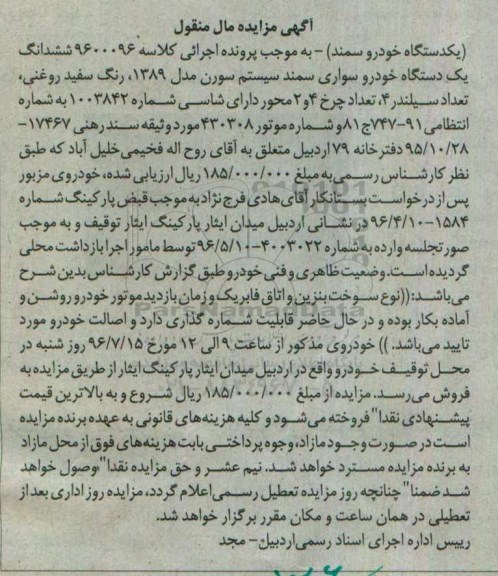 آگهی مزایده مال منقول
(یکدستگاه خودرو سمند) - به موجب پرونده اجرائی کلاسه ۹۶۰۰۰۹۶ ششدانگ
یک دستگاه خودرو سواری سمند سیستم سورن مدل ۱۳۸۹، رنگ سفید روغنی،
تعداد سیلندر ۴، تعداد چرخ ۴و۲ محور دارای شاسی شماره ۱۰۰۳۸۴۲ به شماره
انتظامی ۹۱-۷۴۷ج۸۱ و شماره موتور ۴۳۰۳۰۸ مورد وثیقه سند رهنی ۱۷۴۶۷-
۹۵/۱۰/۲۸ دفترخانه ۷۹ اردبیل متعلق به آقای روح اله فخیمی خلیل آباد که طبق
نظر کارشناس رسمی به مبلغ ۱۸۵/۰۰۰/۰۰۰ ریال ارزیابی شده، خودروی مزبور
پس از درخواست بستانکار آقای هادی فرج نژاد به موجب قبض پارکینگ شماره
۱۵۸۴-۹۶/۴/۱۰ در نشانی اردبیل میدان ایثار پارکینگ ایثار توقیف و به موجب
صورتجلسه وارده به شماره ۴۰۰۳۰۲۲-۹۶/۵/۱۰ توسط مامور اجرا بازداشت محلی
گردیده است. وضعیت ظاهری و فنی خودرو طبق گزارش کارشناس بدین شرح
می باشد: ((نوع سوخت بنزین و اتاق فابریک و زمان بازدید موتور خودرو روشن و
آماده بکار بوده و در حال حاضر قابلیت شماره گذاری دارد و اصالت خودرو مورد
تایید می باشد. )) خودروی مذکور از ساعت ۹ الی ۱۲ مورخ ۹۶/۷/۱۵ روز شنبه در
محل توقیف خودرو واقع در اردبیل میدان ایثار پارکینگ ایثار از طریق مزایده به
فروش می رسد. مزایده از مبلغ ۱۸۵/۰۰۰/۰۰۰ ریال شروع و به بالاترین قیمت
پیشنهادی نقدا" فروخته می شود و کلیه هزینه های قانونی به عهده برنده مزایده
است در صورت وجود مازاد، وجوه پرداختی بابت هزینه های فوق از محل مازاد
به برنده مزایده مسترد خواهد شد. نیم عشر و حق مزایده نقدا" وصول خواهد
شد ضمنا" چنانچه روز مزایده تعطیل رسمی اعلام گردد، مزایده روز اداری بعد از
تعطیلی در همان ساعت و مکان مقرر برگزار خواهد شد.
رییس اداره اجرای اسناد رسمی اردبیل- مجد